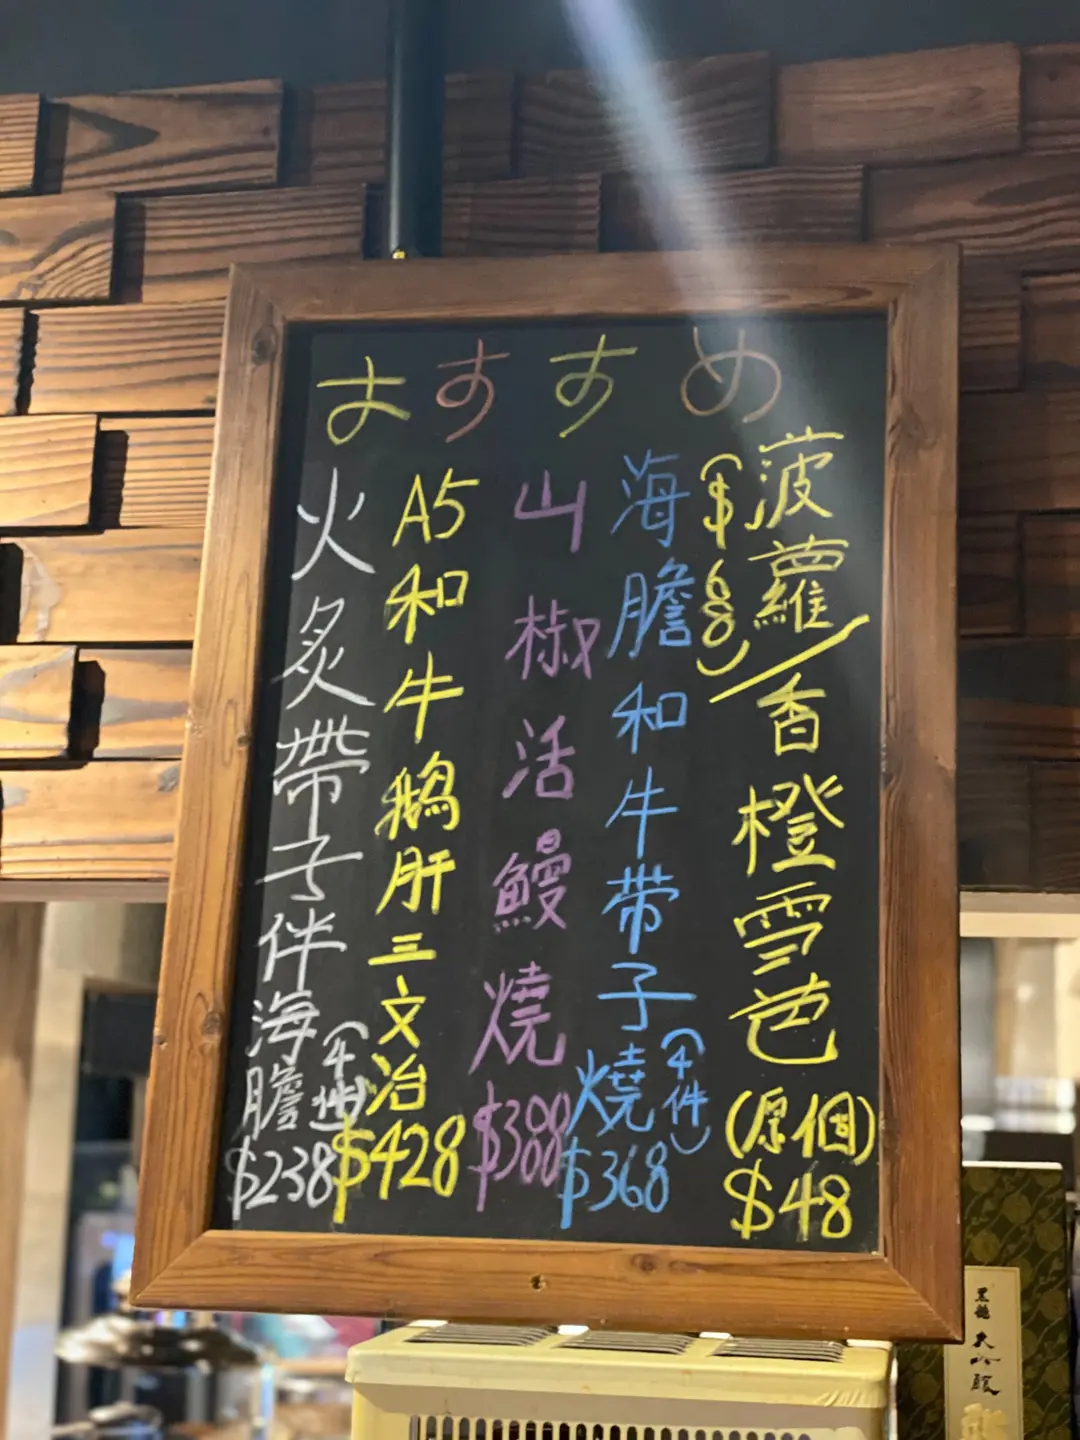 おすすめ
菠蘿/香橙雪芭(原個)$48
($68)
海膽和牛带子燒(4件)$368
山椒活鰻燒$388
A5和牛鵝肝三文治$428
火炙帶子伴海膽(4件)$238
黒龍 大吟醸